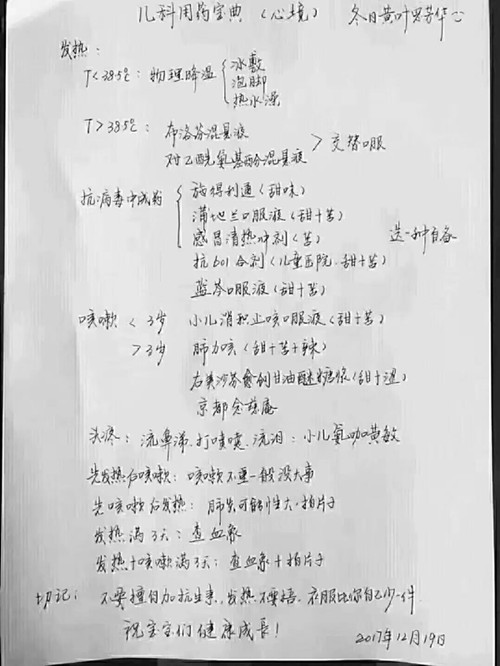 儿科用药宝典（心境） 冬日黄叶
发热：
T<38.5℃：物理降温 冰敷
泡脚
热水澡
T>38.5℃：布洛芬混悬液
对乙酰氨基酚混悬液 > 交替口服
抗病毒中成药 施得利通（甜味）
蒲地兰口服液（甜+苦）
感冒清热冲剂（苦） 选一种自备
抗601合剂（儿童医院、甜+苦）
蓝芩口服液（甜+苦）
咳嗽 <3岁 小儿消积止咳口服液（甜+苦）
>3岁 肺力咳（甜+苦+辣）
右美沙芬愈创甘油醚糖浆（甜+涩）
京都念慈庵
头疼：流鼻涕、打喷嚏、流泪：小儿氨咖黄敏
先发热后咳嗽：咳嗽不重一般没大事
先咳嗽后发热：肺炎可能性大，拍片子
发热满3天：查血象
发热+咳嗽满3天：查血象+拍片子
切记：不要擅自加抗生素，发热不要捂，衣服比你自己少一件
祝宝宝们健康成长！
2017年12月19日